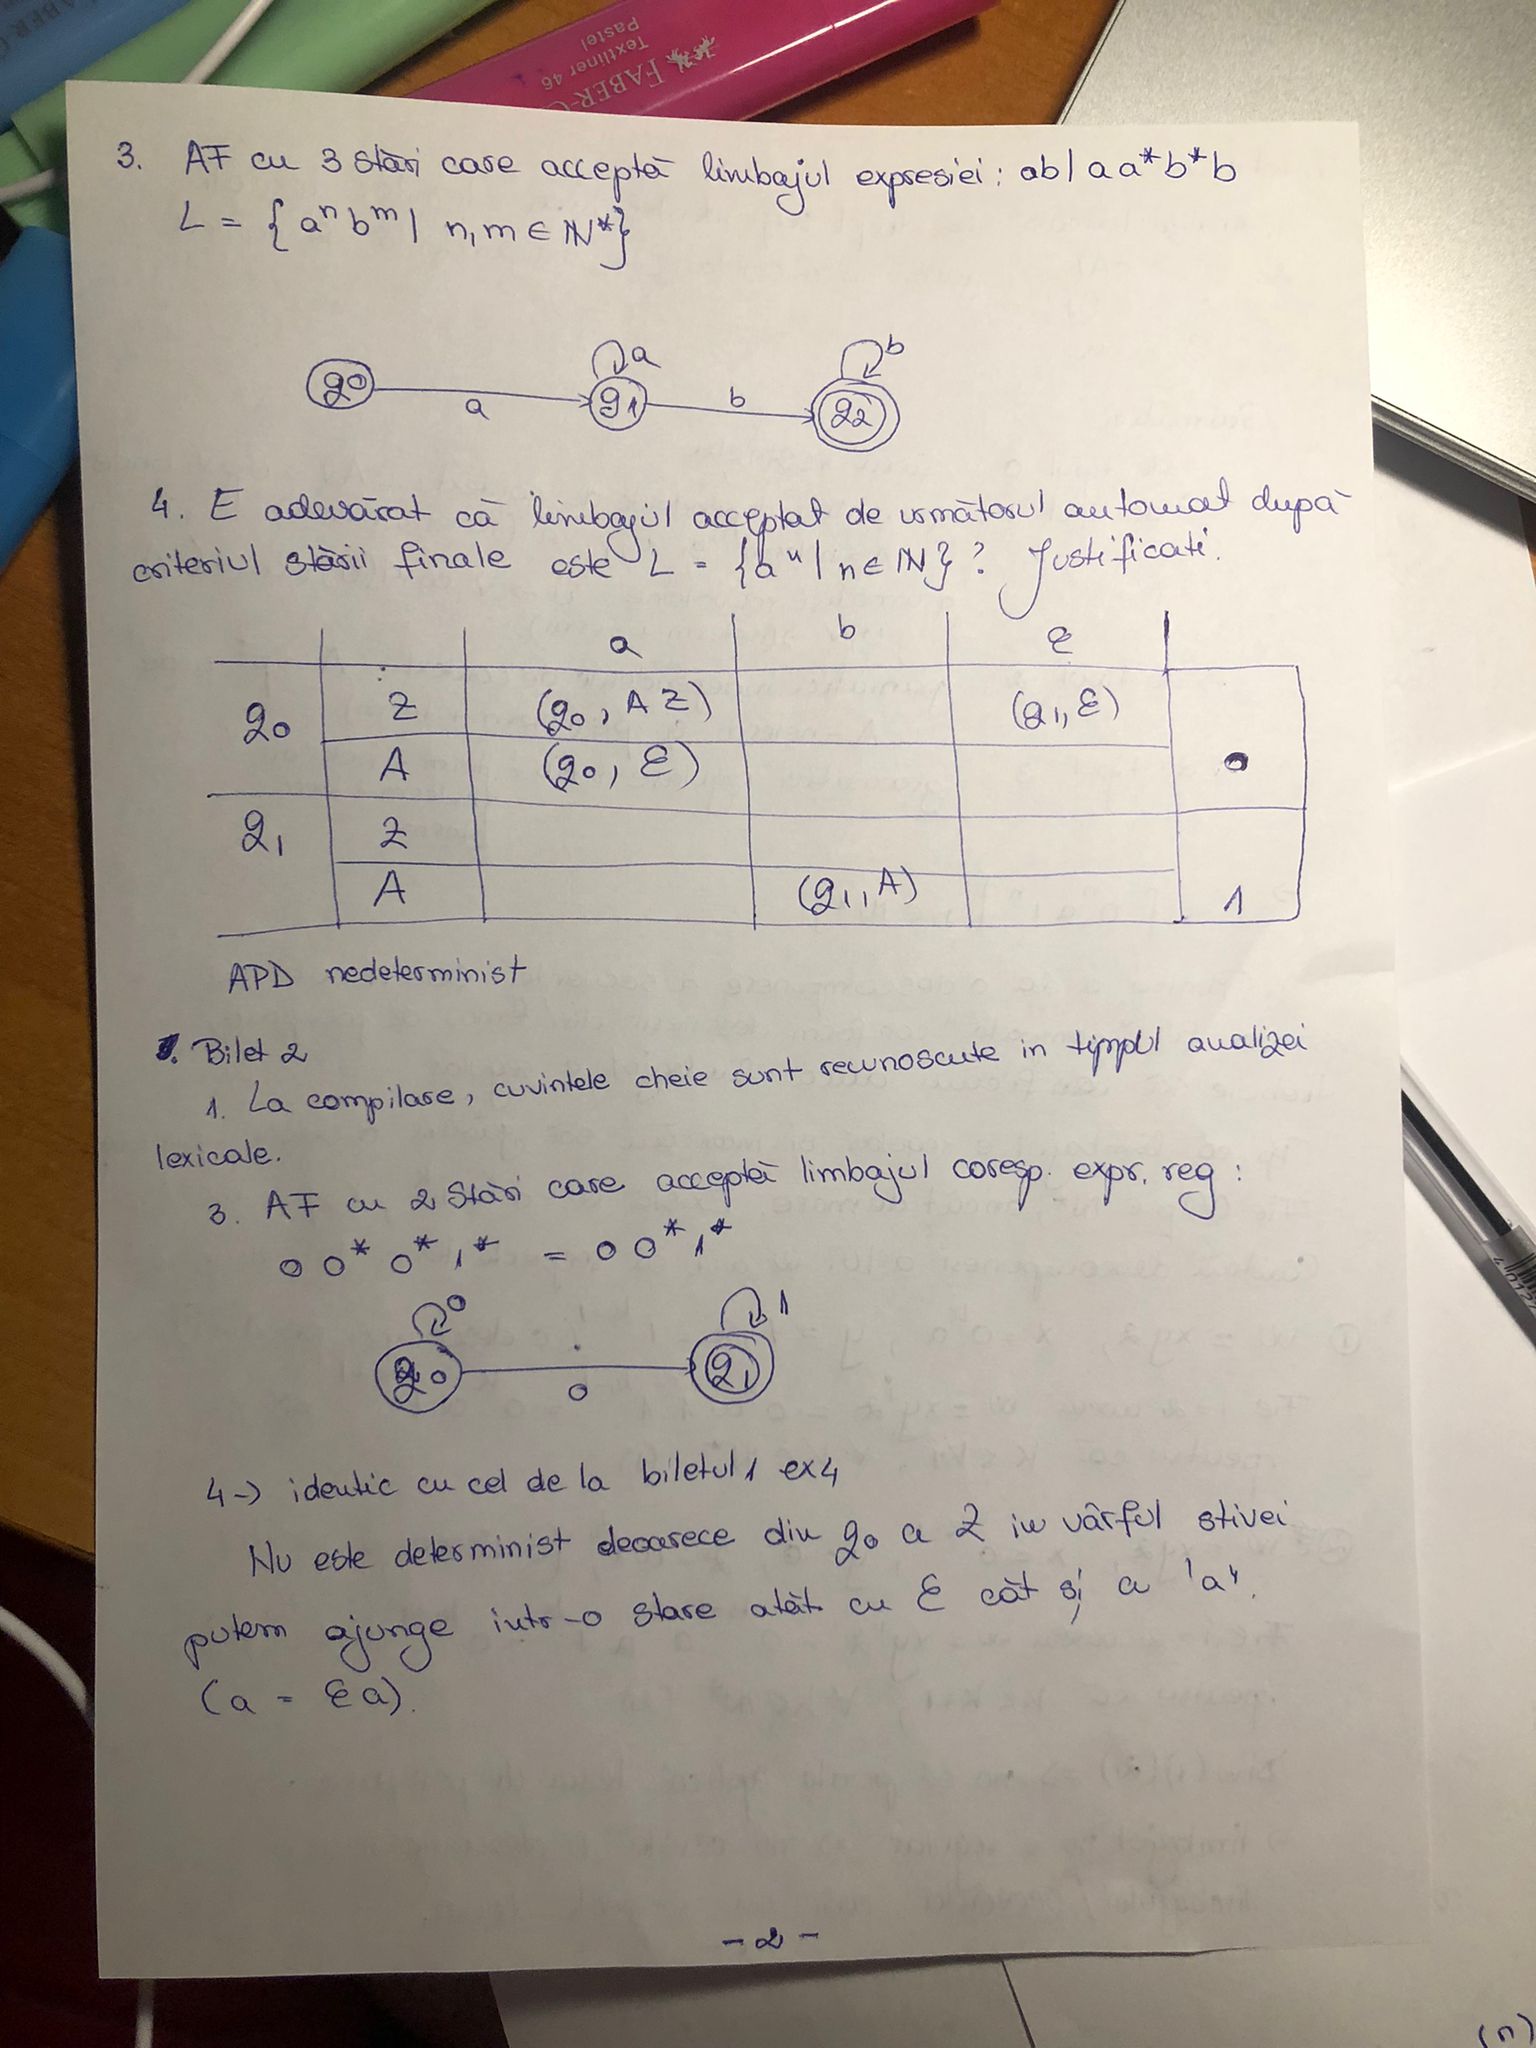 FABER-C
Textliner 46
Pastel
3. AF cu 3 stări care acceptă limbajul expresiei: ab|aa*b*b
L = {aⁿ bᵐ | n,m ∈ ℕ*}
a b
q0 q1 q2
a b
4. E adevărat că limbajul acceptat de următorul automat după
criteriul stării finale este L = {aⁿ | n ∈ ℕ}? Justificați.
a b ε
q0 Z (q0, AZ) (q1, ε)
A (q0, ε) 0
q1 Z
A (q1, A) 1
APD nedeterminist
Bilet 2
1. La compilare, cuvintele cheie sunt recunoscute in timpul analizei
lexicale.
3. AF cu 2 stări care acceptă limbajul coresp. expr. reg:
00*0*1* = 00*1*
0 1
q0 q1
0
4-> identic cu cel de la biletul 1 ex4
Nu este determinist deoarece din q0 cu Z in vârful stivei
putem ajunge intr-o stare atât cu ε cât și cu 'a'.
(a = εa).
- 2 -
(n)